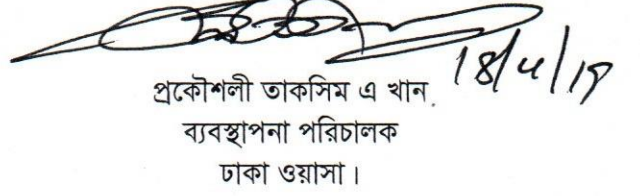 প্রকৌশলী তাকসিম এ খান
ব্যবস্থাপনা পরিচালক
ঢাকা ওয়াসা।